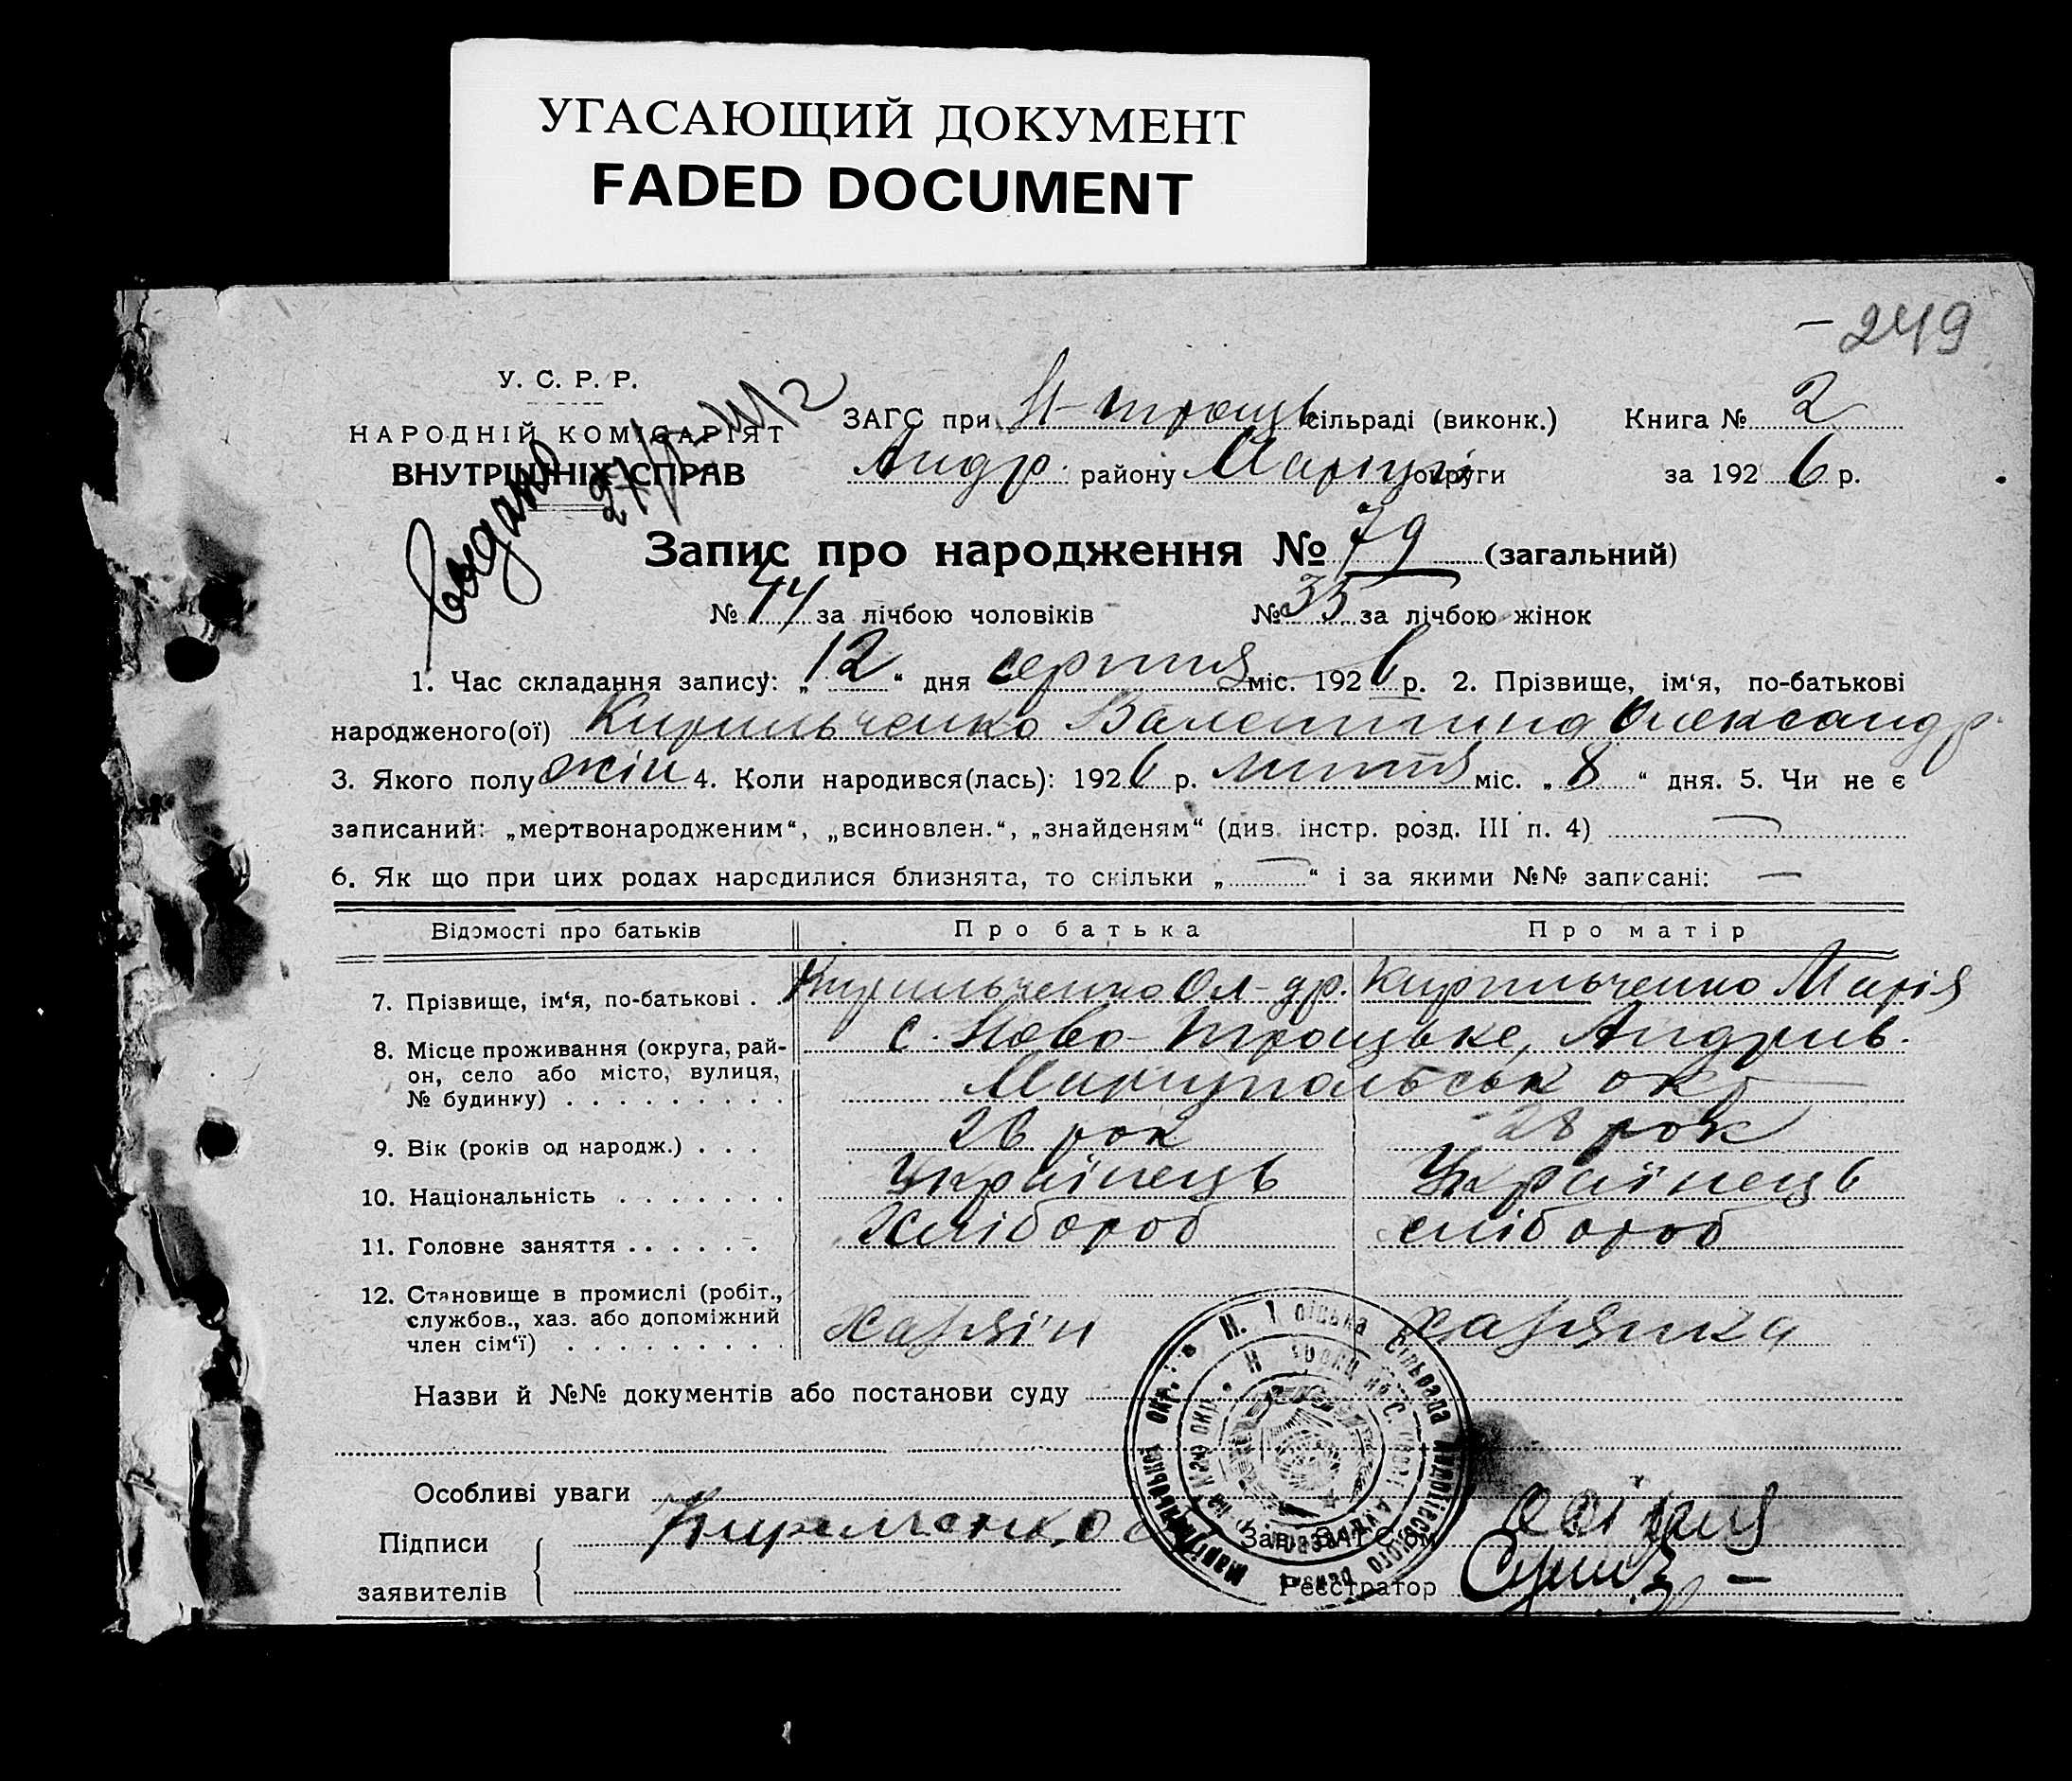 УГАСАЮЩИЙ ДОКУМЕНТ
FADED DOCUMENT
-249
У. С. Р. Р.
НАРОДНІЙ КОМІСАРІЯТ
ВНУТРІШНІХ СПРАВ
ЗАГС при Н-троць сільраді (виконк.) Книга № 2
Андр. району Маріуп округи за 1926 р.
Запис про народження № 79 (загальний)
№ 44 за лічбою чоловіків № 35 за лічбою жінок
1. Час складання запису: „12“ дня серпня міс. 1926 р. 2. Прізвище, ім‘я, по-батькові
народженого(ої) Кирильченко Валентина Олександр.
3. Якого полу жін 4. Коли народився(лась): 1926 р. липня міс. „8“ дня. 5. Чи не є
записаний: „мертвонародженим“, „всиновлен.“, „знайденям“ (див. інстр. розд. III п. 4) —
6. Як що при цих родах народилися близнята, то скільки „—“ і за якими №№ записані: —
Відомості про батьків Про батька Про матір
7. Прізвище, ім‘я, по-батькові . . Кирильченко Ол-др. Кирильченко Марія
8. Місце проживання (округа, рай-
он, село або місто, вулиця,
№ будинку) . . . . . . . . .
с. Ново-Троцьке, Андрив.
Мариупольськ окр
9. Вік (років од народж.) . . . 28 рок 28 рок
10. Національність . . . . . . . Українець Українець
11. Головне заняття . . . . . . Хлібороб хлібороб
12. Становище в промислі (робіт.,
службов., хаз. або допоміжний
член сім‘ї) . . . . . . . . .
хазяін хазяика
Назви й №№ документів або постанови суду
Особливі уваги
Підписи
заявителів
Зав. ЗАГС‘ом
Реєстратор